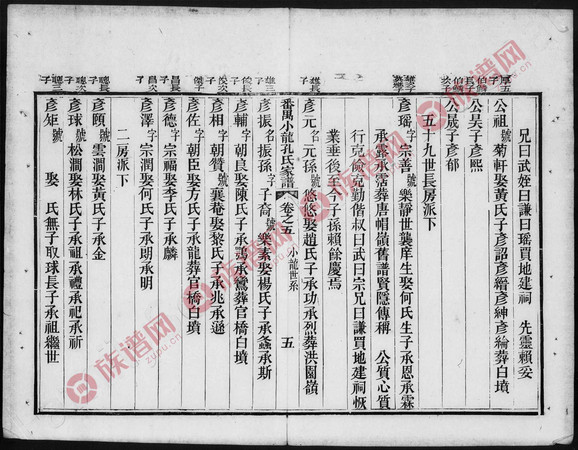 兄曰武姪曰謙曰瑶買地建祠　先靈賴妥
公祖號菊軒娶黃氏子彥詔彥縉彥紳彥綸葬白墳
公昊子彥熙
公晟子彥郁
五十九世長房派下
彥瑶字宗善號樂靜世襲庠生娶何氏生子承恩承霖
承露承霈葬唐帽嶺舊譜賢隱傳稱　公質心質
行克儉克勤偕叔曰武曰宗兄曰謙買地建祠恢
業垂後至今子孫賴餘慶焉
彥元名元孫號悠悠娶趙氏子承功承烈葬洪園嶺
番禺小龍孔氏家譜　卷之五　小龍世系　五
彥振名振孫字子裔號樂素娶楊氏子承螽承斯
彥輔字朝良娶陳氏子承鵠承鸞葬官橋白墳
彥相字朝贊號襄菴娶黎氏子承兆承遜
彥佐字朝臣娶方氏子承龍葬官橋白墳
彥德字宗福娶李氏子承麟
彥澤字宗潤娶何氏子承朗承明
二房派下
彥頤號雲澗娶黃氏子承金
彥球號松澗娶林氏子承祖承禮承祀承祈
彥矩號　娶　氏無子取球長子承祖繼世
族谱网
zupu.cn